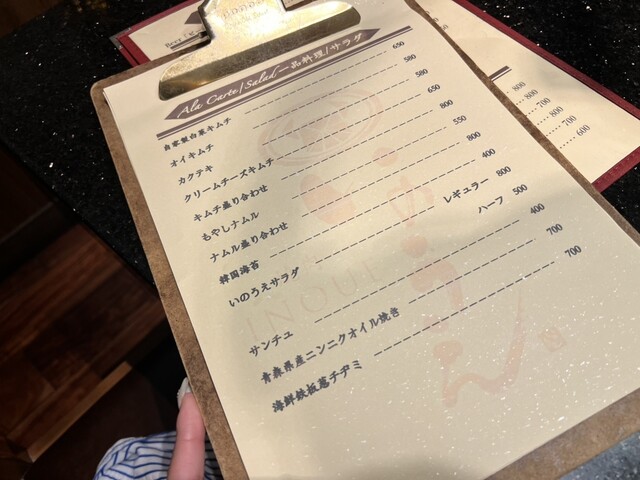 Ala Carte/Salad 一品料理/サラダ
自家製白菜キムチ 650
オイキムチ 580
カクテキ 580
クリームチーズキムチ 650
キムチ盛り合わせ 800
もやしナムル 550
ナムル盛り合わせ 800
韓国海苔 400
いのうえサラダ レギュラー 800
ハーフ 500
サンチュ 400
青森県産ニンニクオイル焼き 700
海鮮鉄板葱チヂミ 700
INOUE
800
800
700
800
700
600